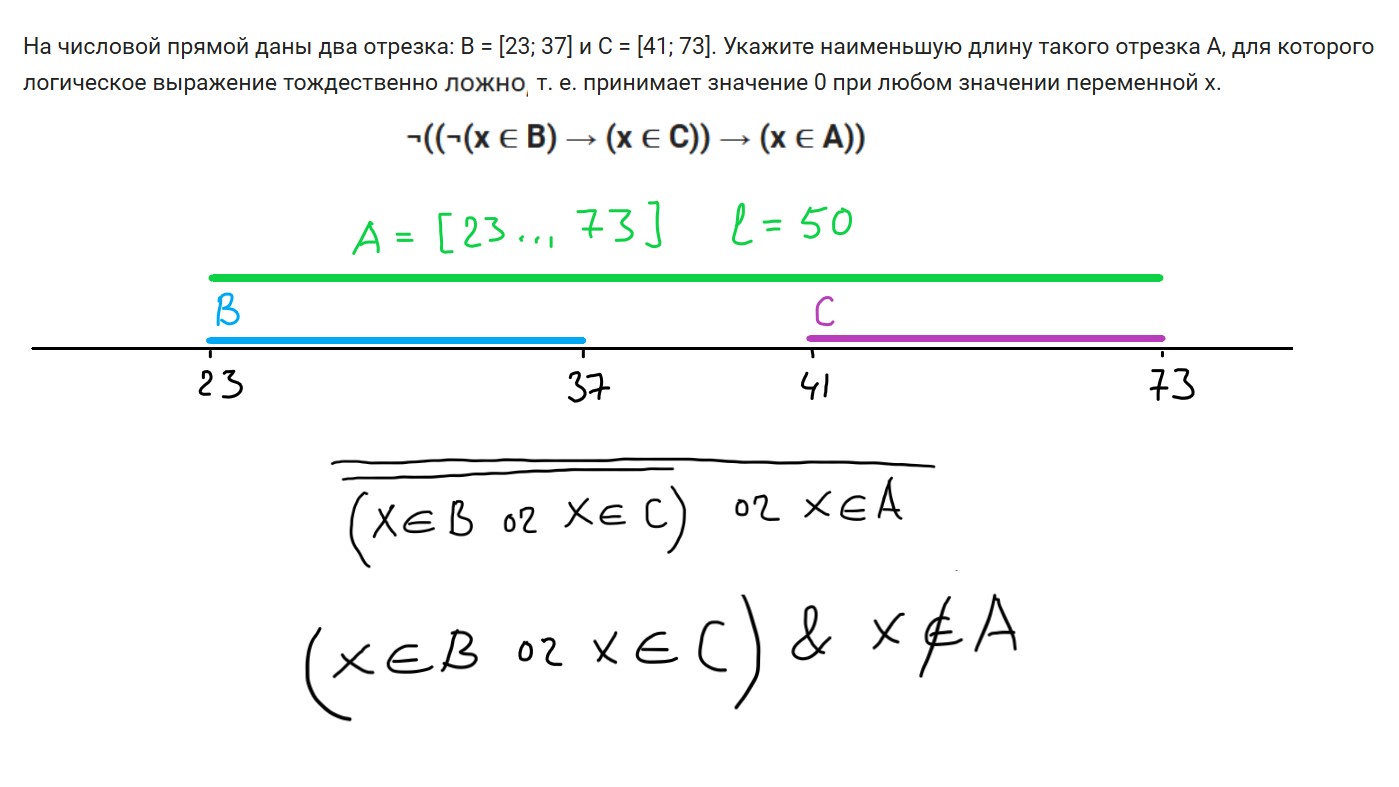 На числовой прямой даны два отрезка: B = [23; 37] и C = [41; 73]. Укажите наименьшую длину такого отрезка A, для которого
логическое выражение тождественно ложно, т. е. принимает значение 0 при любом значении переменной x.
¬((¬(x ∈ B) → (x ∈ C)) → (x ∈ A))
A = [23..., 73] l = 50
B C
23 37 41 73
(x∈B or x∈C) or x∈A
(x∈B or x∈C) & x∉A